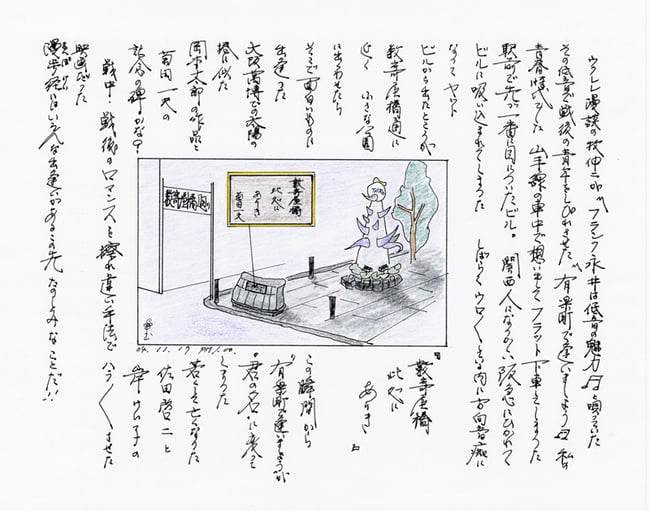 ウクレレ漫談の牧伸二が“フランク永井は低音の魅力”と唄っていた
その低音で戦後の青年をしびれさせた“有楽町で逢いましょう”私の
青春時代でした 山手線の車中で想い出して フラット下車をしまった
駅前で先づ一番に目についたビル。 関西人になつかしい阪急にひかれて
ビルに吸い込まれてしまった しばらくウロ〱している内に方向音痴に
なって ヤット
ビルから出たところが
数寄屋橋通に
近く 小さな公園
に出くわせたら
そこで面白いものに
出逢った
大阪万博での太陽の
塔に似た
岡本太郎の作品と
菊田一夫の
記念の碑かな?
数寄屋橋公園
数寄屋橋
此処に
ありき
菊田一夫
04.11.19 PM1.00.
“数寄屋橋
此処に
ありき”
この瞬間から
“有楽町で逢いましょう”が
“君の名は”に変って
しまった
若くして亡くなった
佐田啓二と
岸恵子の
ハラ〱させた
戦中・戦後のロマンスを擦れ違い手法で
映画だった
漫歩録にはいろんな出逢いがある この先たのしみなことだ!!